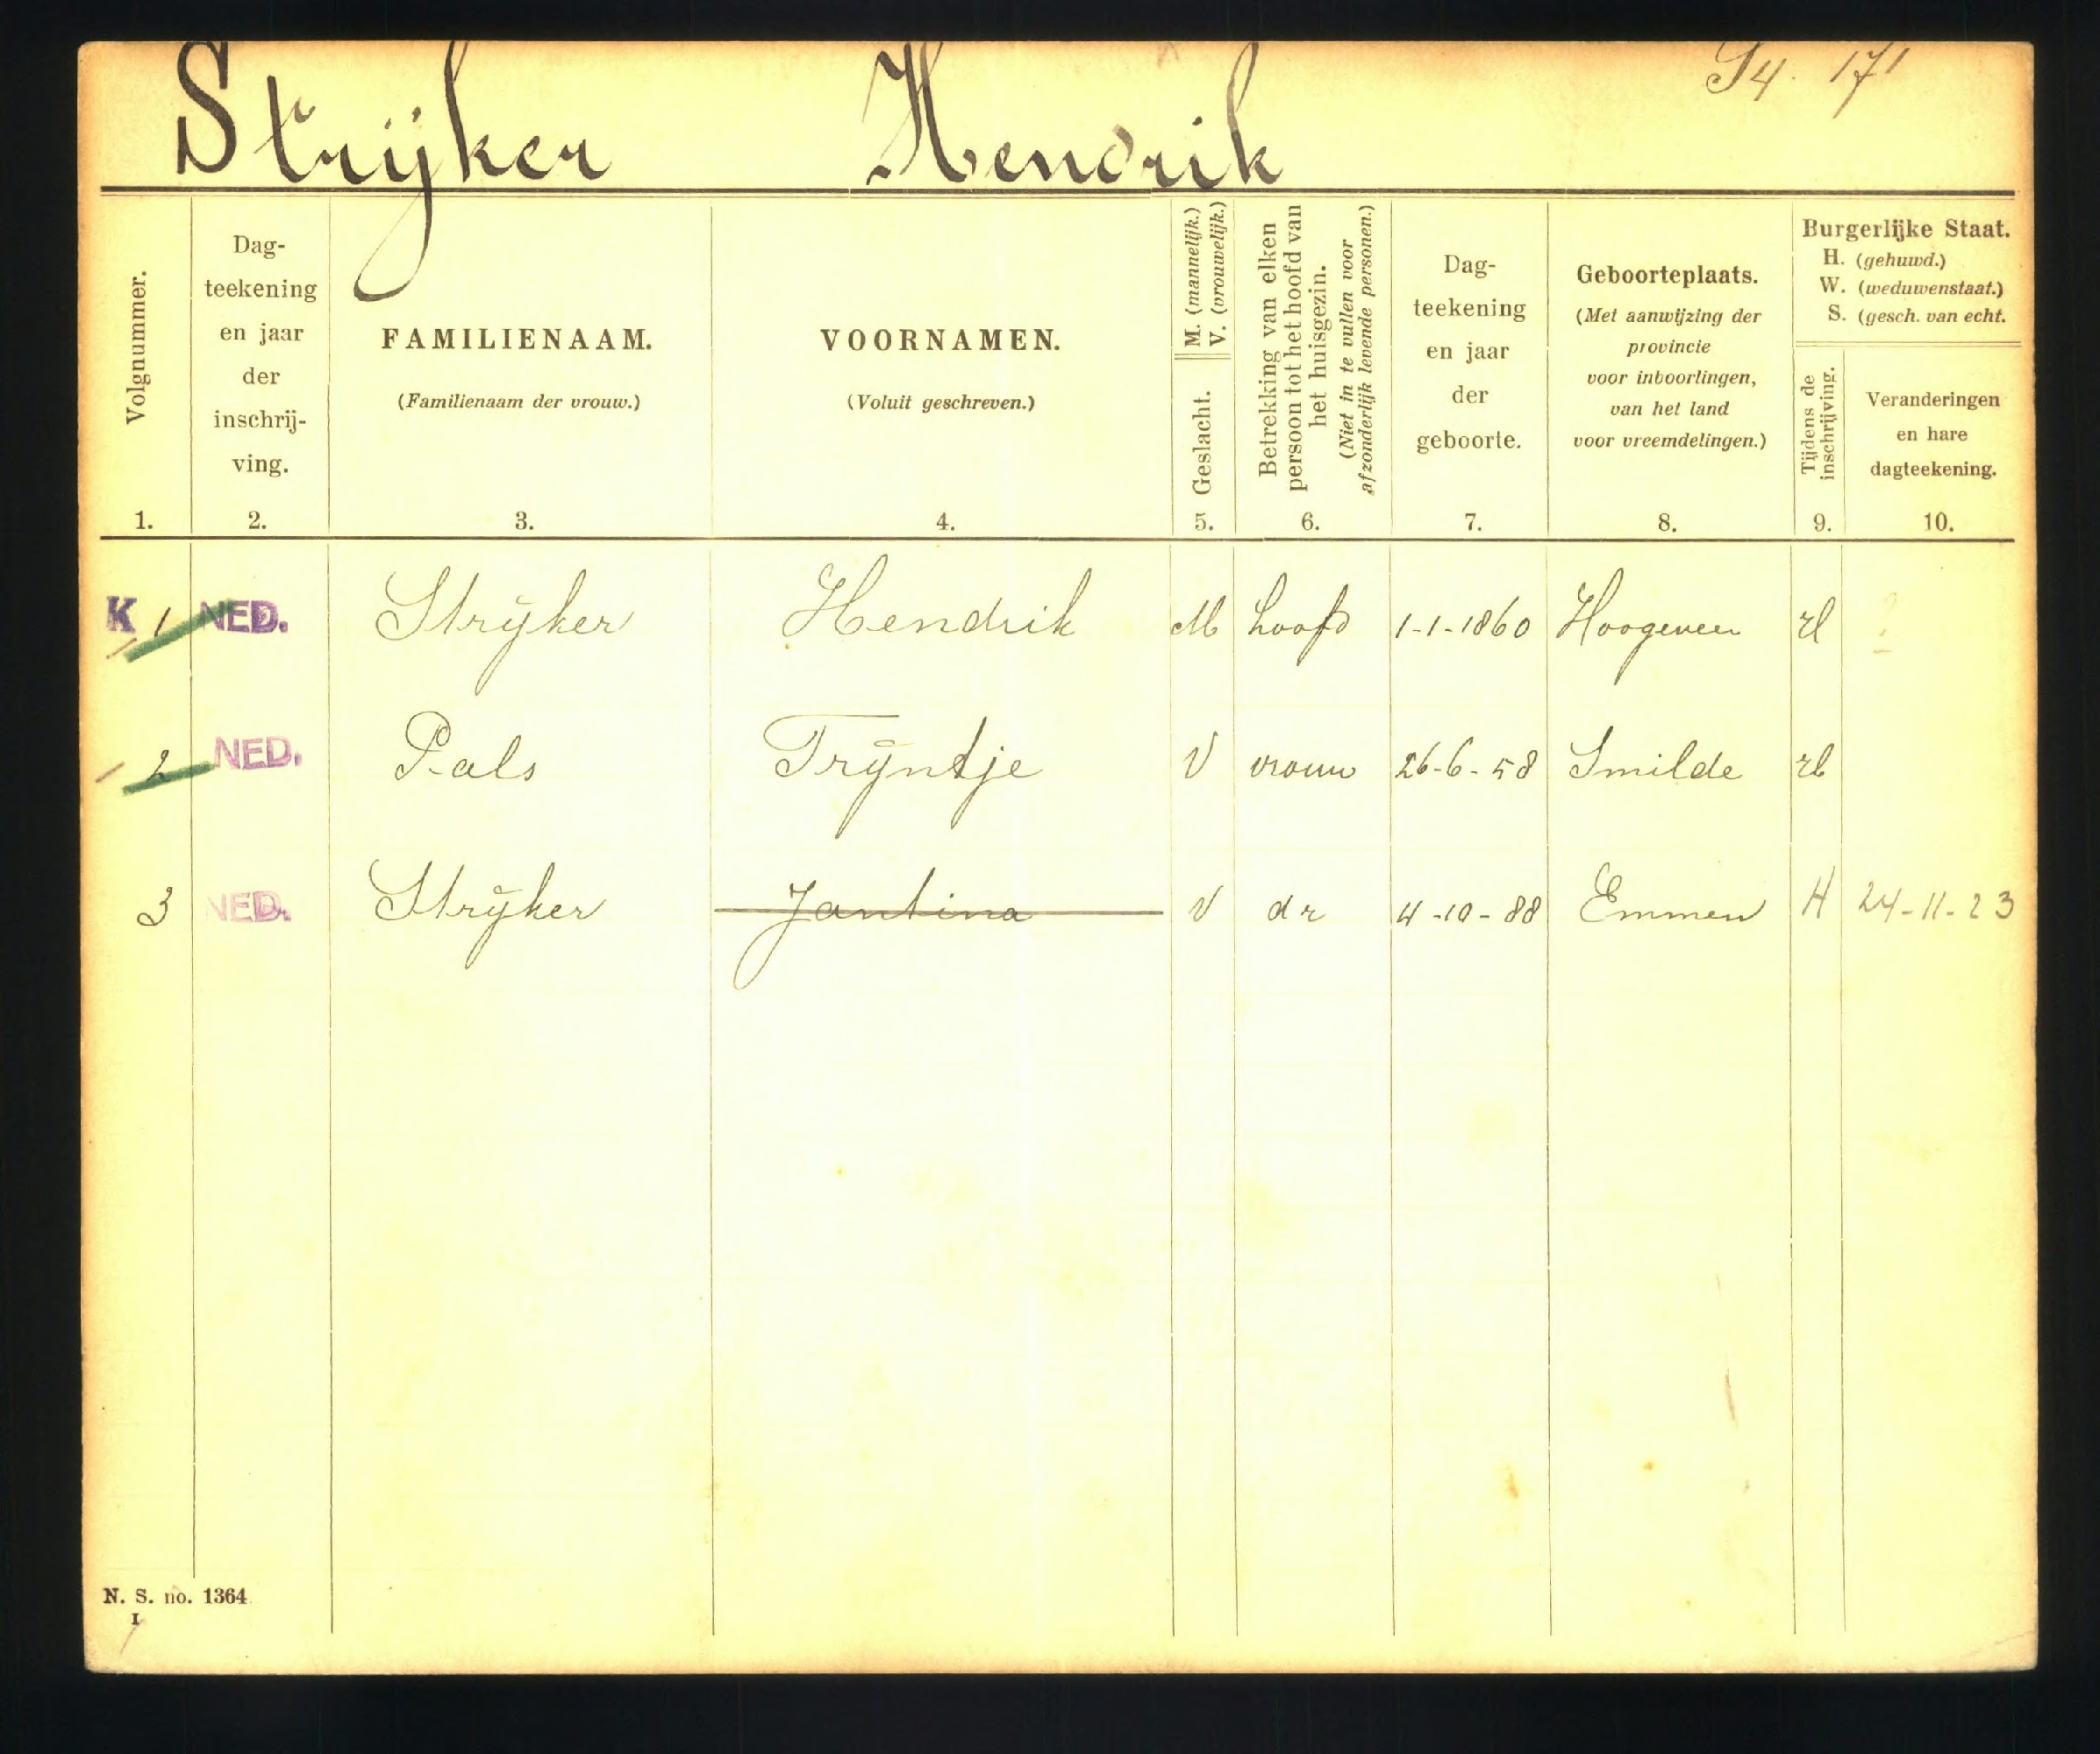 Strijker Hendrik S4. 171
Volgnummer.
1.
Dag-
teekening
en jaar
der
inschrij-
ving.
2.
FAMILIENAAM.
(Familienaam der vrouw.)
3.
VOORNAMEN.
(Voluit geschreven.)
4.
M. (mannelijk.)
V. (vrouwelijk.)
Geslacht.
5.
Betrekking van elken
persoon tot het hoofd van
het huisgezin.
(Niet in te vullen voor
afzonderlijk levende personen.)
6.
Dag-
teekening
en jaar
der
geboorte.
7.
Geboorteplaats.
(Met aanwijzing der
provincie
voor inboorlingen,
van het land
voor vreemdelingen.)
8.
Burgerlijke Staat.
H. (gehuwd.)
W. (weduwenstaat.)
S. (gesch. van echt.
Tijdens de
inschrijving.
9.
Veranderingen
en hare
dagteekening.
10.
K 1 NED. Strijker Hendrik M hoofd 1-1-1860 Hoogeveen H ?
2 NED. Pals Trijntje V vrouw 26-6-58 Smilde H
3 NED. Strijker Jantina V dr 4-10-88 Emmen H 24-11-23
N. S. no. 1364
I